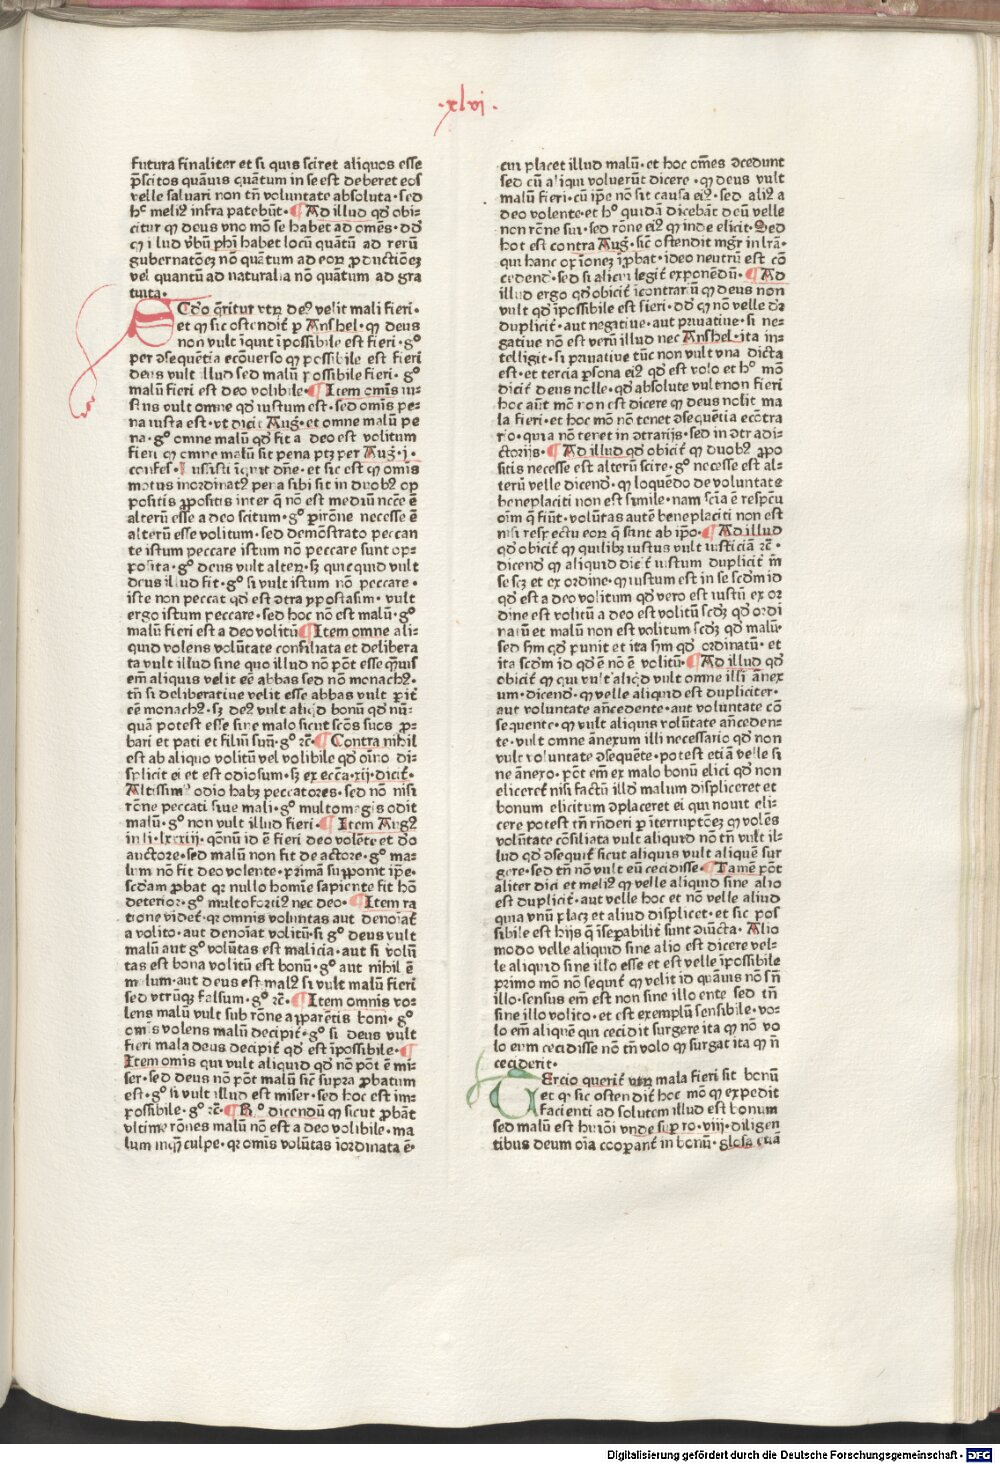 .xlvi.
futura finaliter et si quis sciret aliquos esse
p̄scitos quāuis quātum in se est deberet eos
velle saluari non tñ voluntate absoluta·sed
hͨ meliꝰ infra patebūt·¶Ad illud qd̄ obi-
citur ꝙ deus vno mō se habet ad omēs·dd̄
ꝙ illud v̄bū ph̄i habet locū quātū ad rerū
gubernatōeꝫ nō quātum ad eoꝝ ꝓductiōeꝫ
vel quantū ad naturalia nō quātum ad gra
tuita·
SEcdo q̄ritur vtꝝ deꝰ velit mali fieri·
et ꝙ sic ostendit̄ ꝑ Anshel·ꝙ deus
non vult iquit īpossibile est fieri·gͦ
per ↄsequētia ecōuerso ꝙ possibile est fieri
deus vult illud sed malū possibile fieri·gͦ
malū fieri est deo volibile·¶Item omīs iu-
stus vult omne qd̄ iustum est·sed omīs pe-
na iusta est·vt dicit Aug̅·et omne malū pe
na·gͦ omne malū qd̄ fit a deo est volitum
fieri ꝙ omne malū sit pena ptꝫ per Aug̅·j·
confes·Iussisti iq̄uit dn̄e·et sic est ꝙ omīs
motus inordinatꝰ pena sibi sit in duobꝰ op
positis ꝓpositis inter q̄ nō est mediū nc̄ce ē
alterū esse a deo scitum·gͦ ꝑ irōne necesse ē
alterū esse volitum·sed demōstrato peccan
te istum peccare istum nō peccare sunt op-
posita·gͦ deus vult alteꝝ·sꝫ quicquid vult
deus illud fit·gͦ si vult istum nō peccare·
iste non peccat qd̄ est ↄtra ypostasim·vult
ergo istum peccare·sed hoc nō est malū·gͦ
malū fieri est a deo volitū¶Item omne ali-
quid volens volūtate consiliata et delibera
ta vult illud sine quo illud nō pōt esse q̄uis
em̄ aliquis velit eē abbas sed nō monachꝰ·
tñ si deliberatiue velit esse abbas vult ꝑit̄
eē monachꝰ·sꝫ deꝰ vult aliq̄d bonū qd̄ nū-
quā potest esse sine malo sicut scōs suos ꝓ-
bari et pati et filiū suū·gͦ rc̄·¶Contra nihil
est ab aliquo volitū vel volibile qd̄ oīno di-
splicit ei et est odiosum·sꝫ ex ecc̄a·xij·dicit̄·
Altissimꝰ odio habꝫ peccatores·sed nō nisi
rōne peccati siue mali·gͦ multomagis odit
malū·gͦ non vult illud fieri·¶Item Augꝰ
in li·lxxxiij·qōnū id ē fieri deo volēte et do
auctore·sed malū non fit de actore·gͦ ma-
lum nō fit deo volente·primā supponit ip̄e·
scdam ꝓbat qꝛ nullo homīe sapiente fit hō
deterior·gͦ multo fortiꝰ nec deo·¶Item ra
tione videt̄·qꝛ omnis voluntas aut denoīat̄
a volito·aut denoīat volitū·si gͦ deus vult
malū aut gͦ volūtas est malicia·aut si volū
tas est bona volitū est bonū·gͦ aut nihil ē
malum·aut deus est malꝰ si vult malū fieri
sed vtrūqꝫ falsum·gͦ rc̄·¶Item omnis vo-
lens malū vult sub rōne apparētis boni·gͦ
omīs volens malū decipit̄·gͦ si deus vult
fieri mala deus decipit̄ qd̄ est īpossibile·¶
Item omīs qui vult aliquid qd̄ nō pōt ē mi-
ser·sed deus nō pōt malū sic̄ supra ꝓbatum
est·gͦ si vult illud est miser·sed hoc est im-
possibile·gͦ rc̄·¶R̄·ͦ dicendū ꝙ sicut ꝓbāt
vltime rōnes malū nō est a deo volibile·ma
lum inq̄ culpe·qꝛ omīs volūtas īordinata ē·
cui placet illud malū·et hoc om̄es ↄcedunt
sed cū aliqui voluerūt dicere·ꝙ deus vult
malū fieri·cū ip̄e nō sit causa eiꝰ·sed aliꝰ a
deo volente·et hͦ quidā dicebāt deū velle
non rōne sui·sed rōne eiꝰ ꝙ inde elicit·Sed
hoc est contra Aug̅·sic̄ ostendit mgr̄ in lr̄a·
qui hanc opīonez īꝓbat·ideo neutrū est cō
cedend̄·sed si alicui legit̄ exponēdū·¶Ad
illud ergo qd̄ obicit̄ icontrarū ꝙ deus non
vult qd̄ īpossibile est fieri·dd̄ ꝙ nō velle dr̄
duplicit̄·aut negatiue·aut priuatiue·si ne-
gatiue nō est verū illud nec Anshel·ita in-
telligit·si priuatiue tūc non vult vna dicta
est·et tercia ꝑsona eiꝰ qd̄ est volo et hͦ mō
dicit̄ deus nolle·qd̄ absolute vult non fieri
hoc aūt mō non est dicere ꝙ deus nolit ma
la fieri·et hoc mō nō tenet ↄsequētia ecōtra
rio·quia nō tenet in ↄtrarijs·sed in ↄtradi-
ctorijs·¶Ad illud qd̄ obicit̄ ꝙ duobꝰ ꝓpo
sitis necesse est alterū scire·gͦ necesse est al-
terū velle dicend̄·ꝙ loquēdo de voluntate
beneplaciti non est simile·nam scīa ē respcū
oīm q̄ fiūt·volūtas autē beneplaciti non est
nisi respectu eoꝝ q̄ sunt ab ip̄o·¶Ad illud
qd̄ obicit̄ ꝙ quilibꝫ iustus vult iusticiā rc̄·
dicend̄ ꝙ aliquid dicit̄ iustum duplicit̄ in
se scꝫ et ex ordine·ꝙ iustum est in se scdm id
qd̄ est a deo volitum qd̄ vero est iustū ex or
dine est volitū a deo est volitū scdꝫ qd̄ ordi
natū et malū non est volitum scdꝫ qd̄ malū·
sed hm̄ qd̄ punit et ita hm̄ qd̄ ordinatū·et
ita scdm id qd̄ ē nō ē volitū·¶Ad illud qd̄
obicit̄ ꝙ qui vult aliq̄d vult omne illi ānex
um·dicend̄·ꝙ velle aliquid est dupliciter·
aut voluntate añcedente·aut voluntate cō
sequente·ꝙ vult aliquis volūtate añceden-
te·vult omne ānexum illi necessario qd̄ non
vult voluntate ↄsequēte·potest etiā velle si
ne ānexo·pōt em̄ ex malo bonū elici qd̄ non
eliceret̄ nisi factū illd̄ malum displiceret et
bonum elicitum ↄplaceret ei qui nouit eli-
cere potest tñ rn̄deri ꝑ īterruptōeꝫ ꝙ volēs
volūtate cōsiliata vult aliquid nō tñ vult il-
lud qd̄ ↄsequit̄ sicut aliquis vult aliquē sur
gere·sed tñ nō vult eū cecidisse·¶Tamē pōt
aliter dici et meliꝰ ꝙ velle aliquid sine alio
est duplicit̄·aut velle hoc et nō velle aliud
quia vnū placꝫ et aliud displicet·et sic pos
sibile est hijs q̄ isepabilit̄ sunt diūcta·Alio
modo velle aliquid sine alio est dicere vel-
le aliquid sine illo esse et est velle īpossibile
primo mō nō sequit̄ ꝙ velit id quāuis nō sñ
illo·sensus em̄ est non sine illo ente sed tñ
sine illo volito·et est exemplū sensibile·vo-
lo em̄ aliquē qui cecidit surgere ita ꝙ nō vo
lo eum cecidisse nō tñ volo ꝙ surgat ita ꝙ ñ
ceciderit·
TErcio querit̄ vtꝝ mala fieri sit bonū
et ꝙ sic ostendit̄ hoc mō ꝙ expedit
facienti ad solutem illud est bonum
sed malū est huiōi vnde sup ro·viij·diligen
tibus deum oīa cooꝑant̄ in bonū·glosa etiā
Digitalisierung gefördert durch die Deutsche Forschungsgemeinschaft - DFG